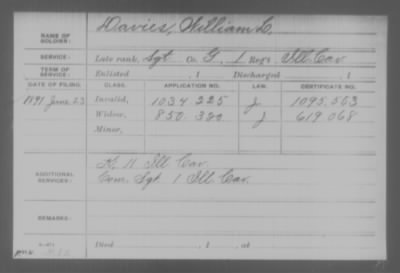 NAME OF SOLDIER: Davies, William L.
SERVICE: Late rank, Sgt Co. G, 1 Reg't Ill Cav
TERM OF SERVICE: Enlisted , 1 Discharged , 1
DATE OF FILING. CLASS. APPLICATION NO. LAW. CERTIFICATE NO.
1891 June 23 Invalid, 1034 225 J. 1095.553
Widow, 850.380 J 619 068
Minor,
ADDITIONAL SERVICES: K. 11 Ill Cav.
Com. Sgt 1 Ill Cav.
REMARKS:
Died , 1 , at